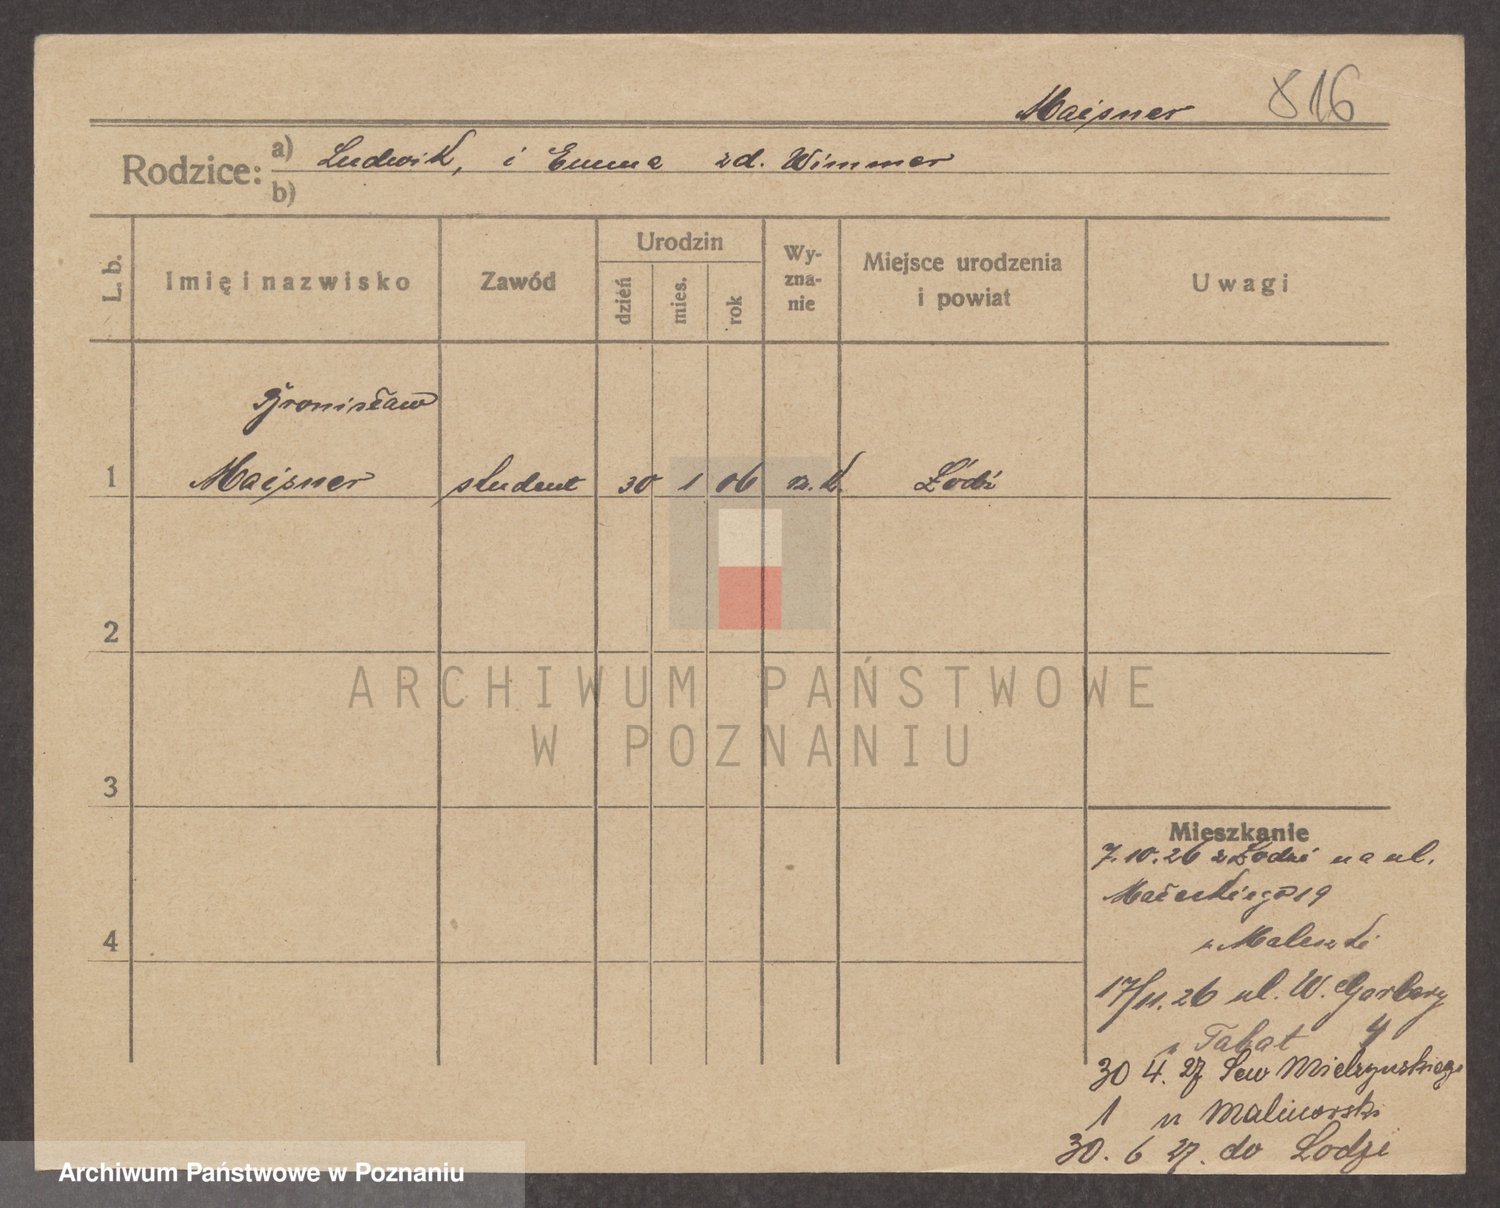 Maisner 816
Rodzice: a) Ludwik, i Emma zd. Wimmer
b)
L. b.
Imię i nazwisko
Zawód
Urodzin
dzień
mies.
rok
Wy-
zna-
nie
Miejsce urodzenia
i powiat
Uwagi
Bronisław
1 Maisner student 30 1 06 rz. k. Łódź
2
3
4
Mieszkanie
7.10.26 z Łodzi na ul.
Małeckiego 19
u Maleszki
17/11.26 ul. W. Garbary
4
u Tabat
30 4. 27 Sew Mielżyńskiego
1 u Malinowski
30. 6 27. do Łodzi
ARCHIWUM PAŃSTWOWE
W POZNANIU
Archiwum Państwowe w Poznaniu